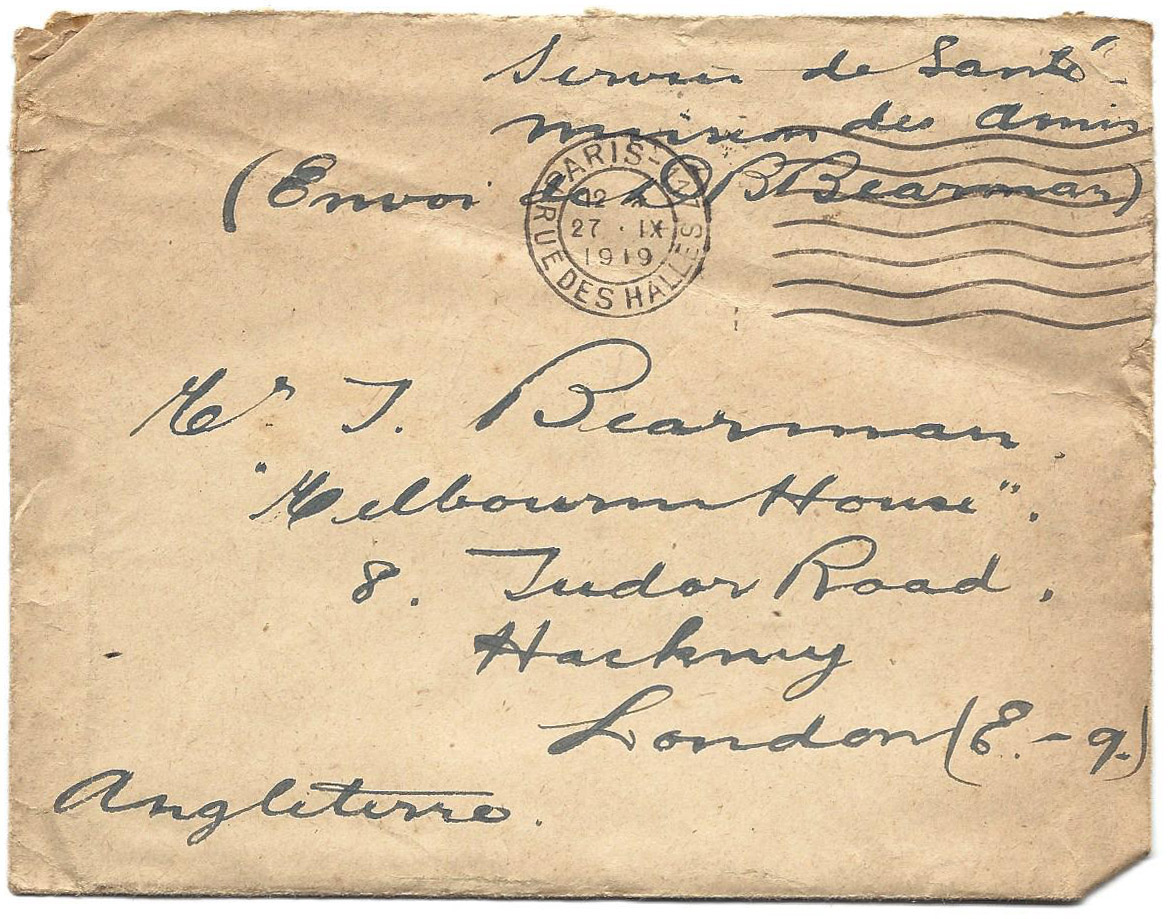 Service de Santé
mission des Amis
(Envoi de L B Bearman)
PARIS - RUE DES HALLES
12
27 · IX
1919
Mr T. Bearman
"Melbourne House".
8. Tudor Road.
Hackney
London (E.-9.)
Angleterre.